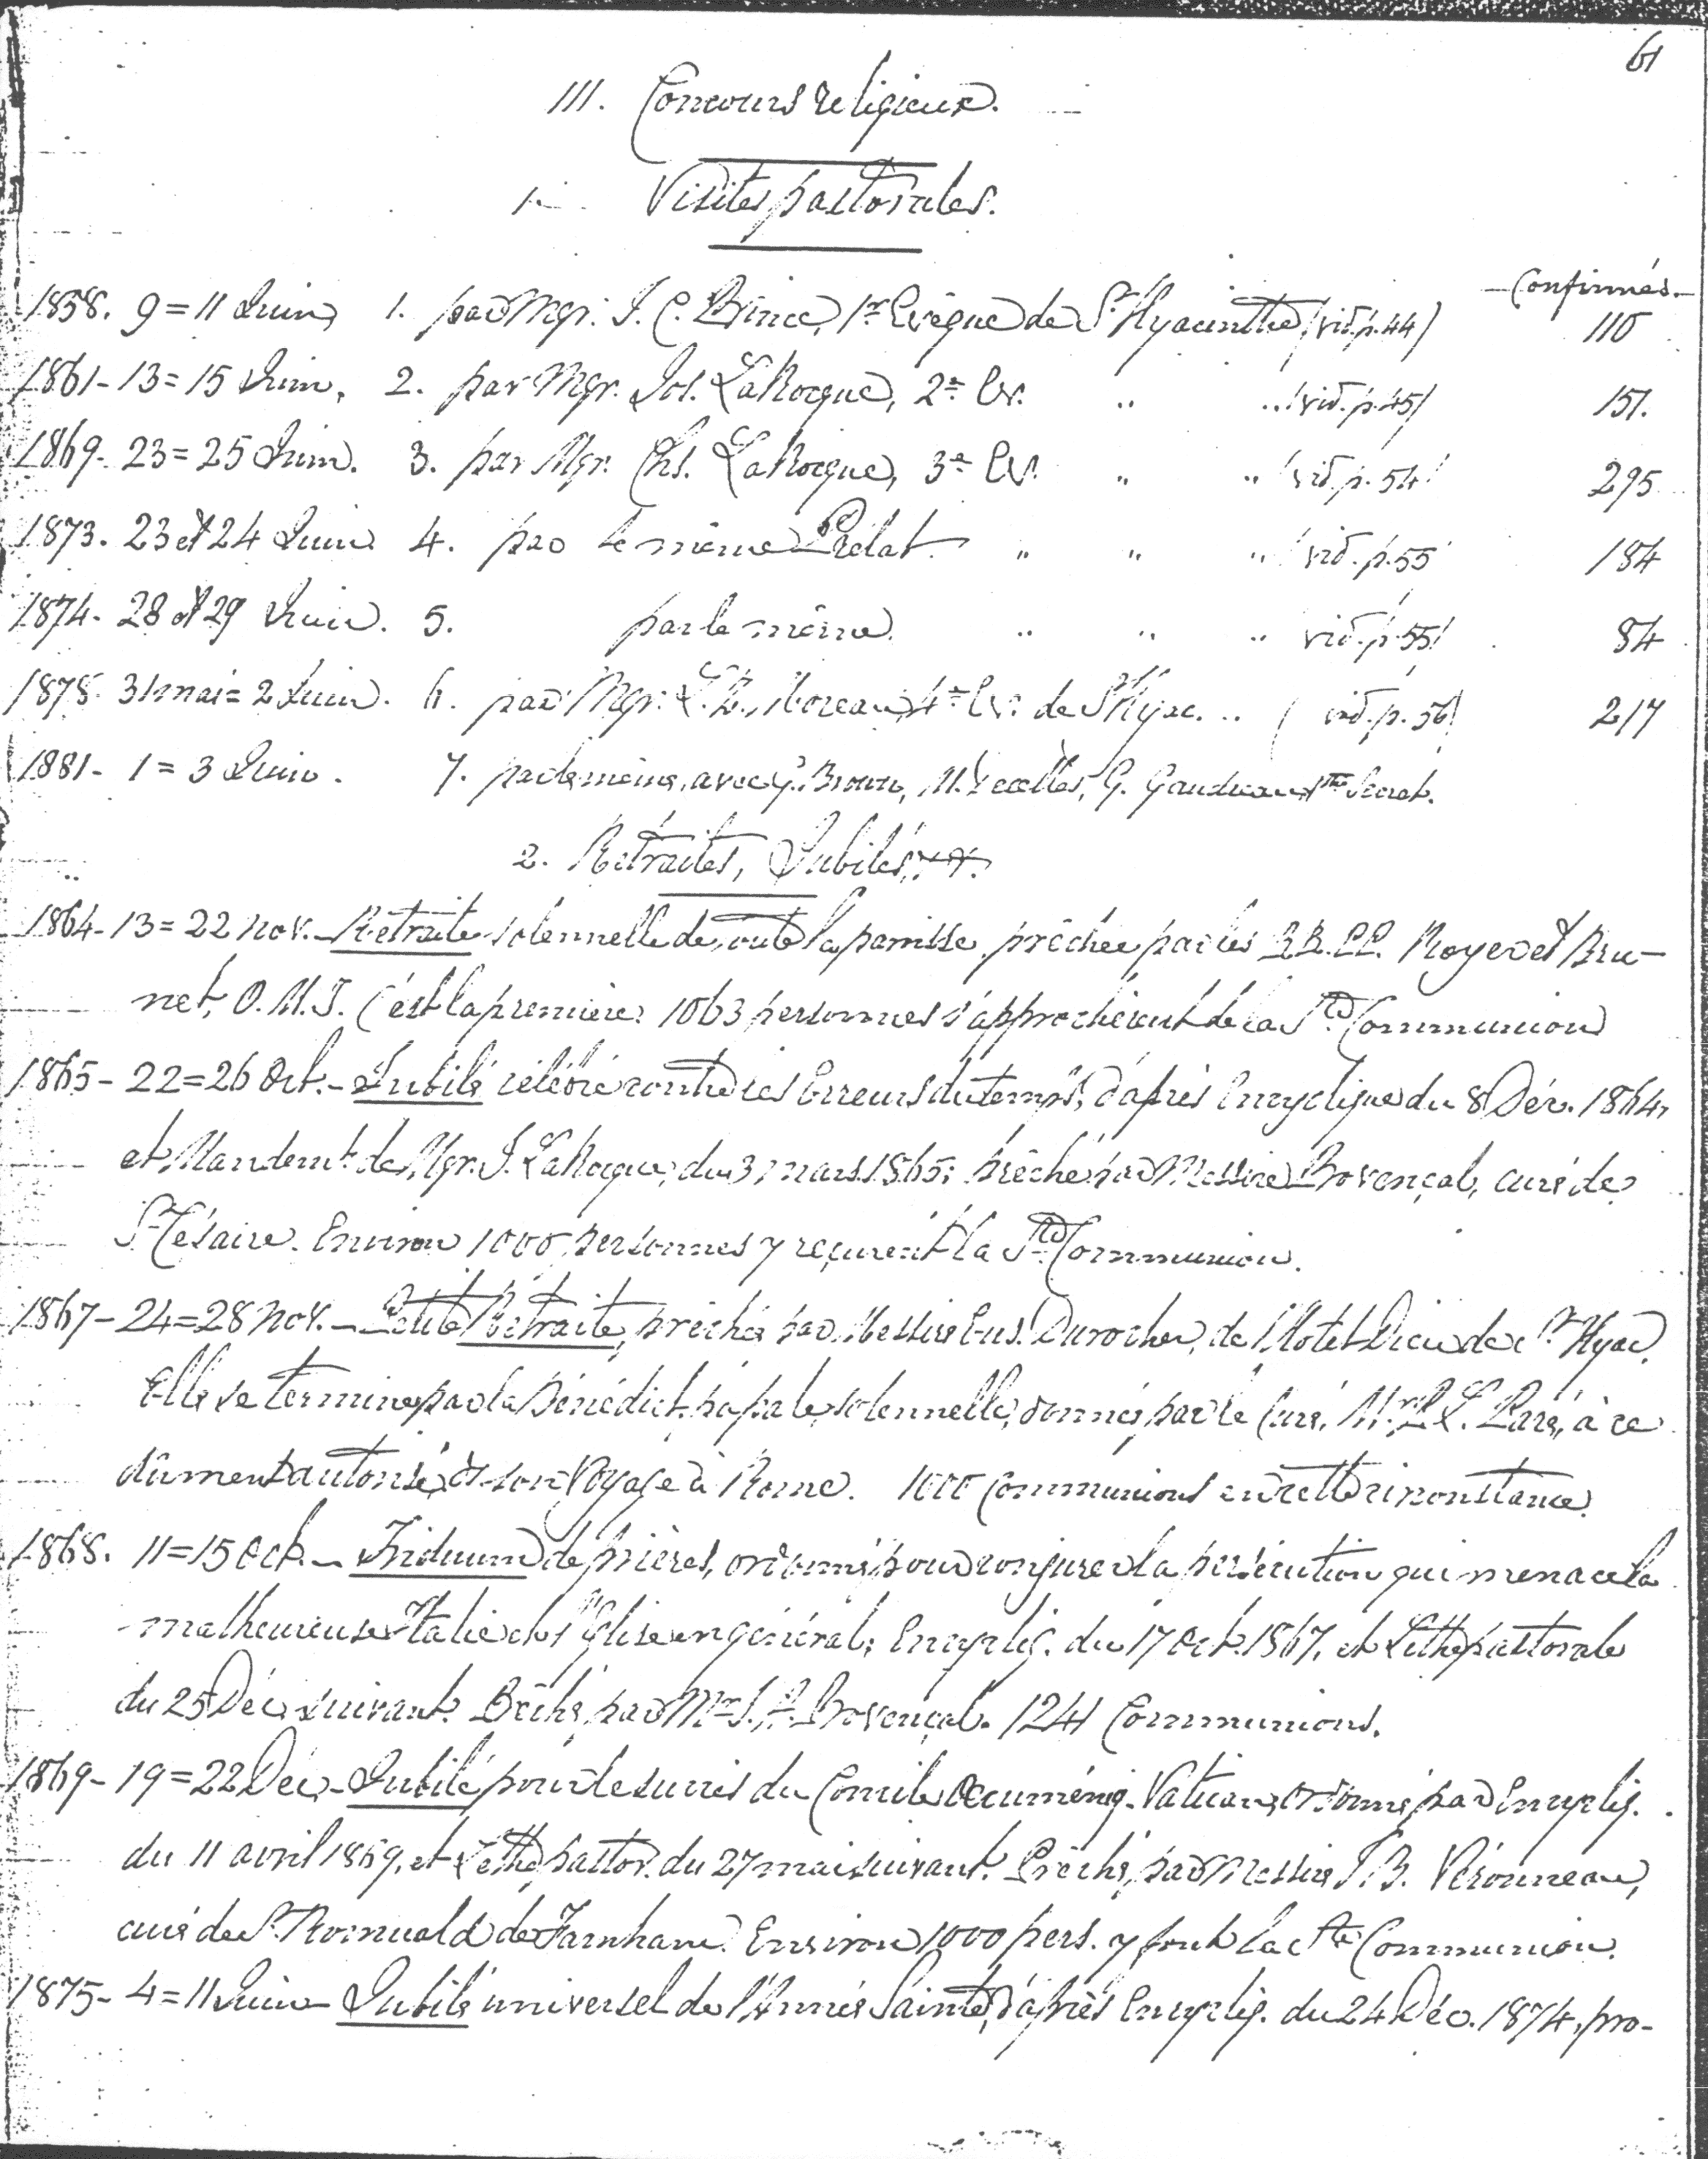 61
III. Concours religieux.
1. Visites pastorales.
Confirmés.
1858. 9 = 11 Juin, 1. par Mgr. J. C. Prince, 1r Evêque de St Hyacinthe (vid. p. 44) 110
1861 - 13 = 15 Juin, 2. par Mgr. Jos. LaRocque, 2e Ev. " " (vid. p. 45) 151.
1869 - 23 = 25 Juin. 3. par Mgr. Chs. LaRocque, 3e Ev. " " (vid. p. 54) 295
1873. 23 et 24 Juin 4. par le même Prélat " " " (vid. p. 55 184
1874 - 28 et 29 Juin. 5. par le même " " " vid. p. 55) 84
1878. 31 mai = 2 Juin. 6. par Mgr. L. Z. Moreau, 4e Ev. de St Hyac. .. ( vid. p. 56) 217
1881 - 1 = 3 Juin. 7. par le même, avec G. Brown, M. Decelles, G. Gaudreau Secret.
2. Retraites, Jubilés,
1864 - 13 = 22 nov. - Retraite solennelle de toute la paroisse, prêchée par les RR. PP. Royer et Bru-
net, O. M. I. C'est la première. 1063 personnes s'approchèrent de la Ste Communion
1865 - 22 = 26 Oct. - Jubilé célébré contre les Erreurs du temps, d'après Encyclique du 8 Déc. 1864,
et Mandemt de Mgr. J. LaRocque, du 3 mars 1865; prêché par Messire Provençal, curé de
St Césaire. Environ 1000 personnes y reçurent la Ste Communion.
1867 - 24 = 28 Nov. - Petite Retraite, prêchée par Messire Eus. Durocher, de l'Hotel Dieu de St Hyac.
Elle se termine par la Bénédict. papale, solennelle, donnée par le Curé, Mr. L. Paré, à ce
dûment autorisé, son Voyage à Rome. 1000 Communions en cette circonstance.
1868. 11 = 15 Oct. - Triduum de prières, ordonné pour conjurer la persécution qui menace la
malheureuse Italie et l'Eglise en général; Encyclig. du 17 Oct. 1867, et Lettre pastorale
du 25 Déc. suivant. Prêché, par Mr J. A. Provençal. 1241 Communions.
1869 - 19 = 22 Déc. - Jubilé pour le succès du Concile Oecuméniq. Vatican, ordonné par Encyclig.
du 11 avril 1869, et Lettre pastor. du 27 mai suivant. Prêché, par Messire J. B. Véronneau,
curé de St. Romuald de Farnham. Environ 1000 pers. y font la Ste Communion.
1875 - 4 = 11 Juin - Jubilé universel de l'Année Sainte, d'après Encyclig. du 24 Déc. 1874, pro-